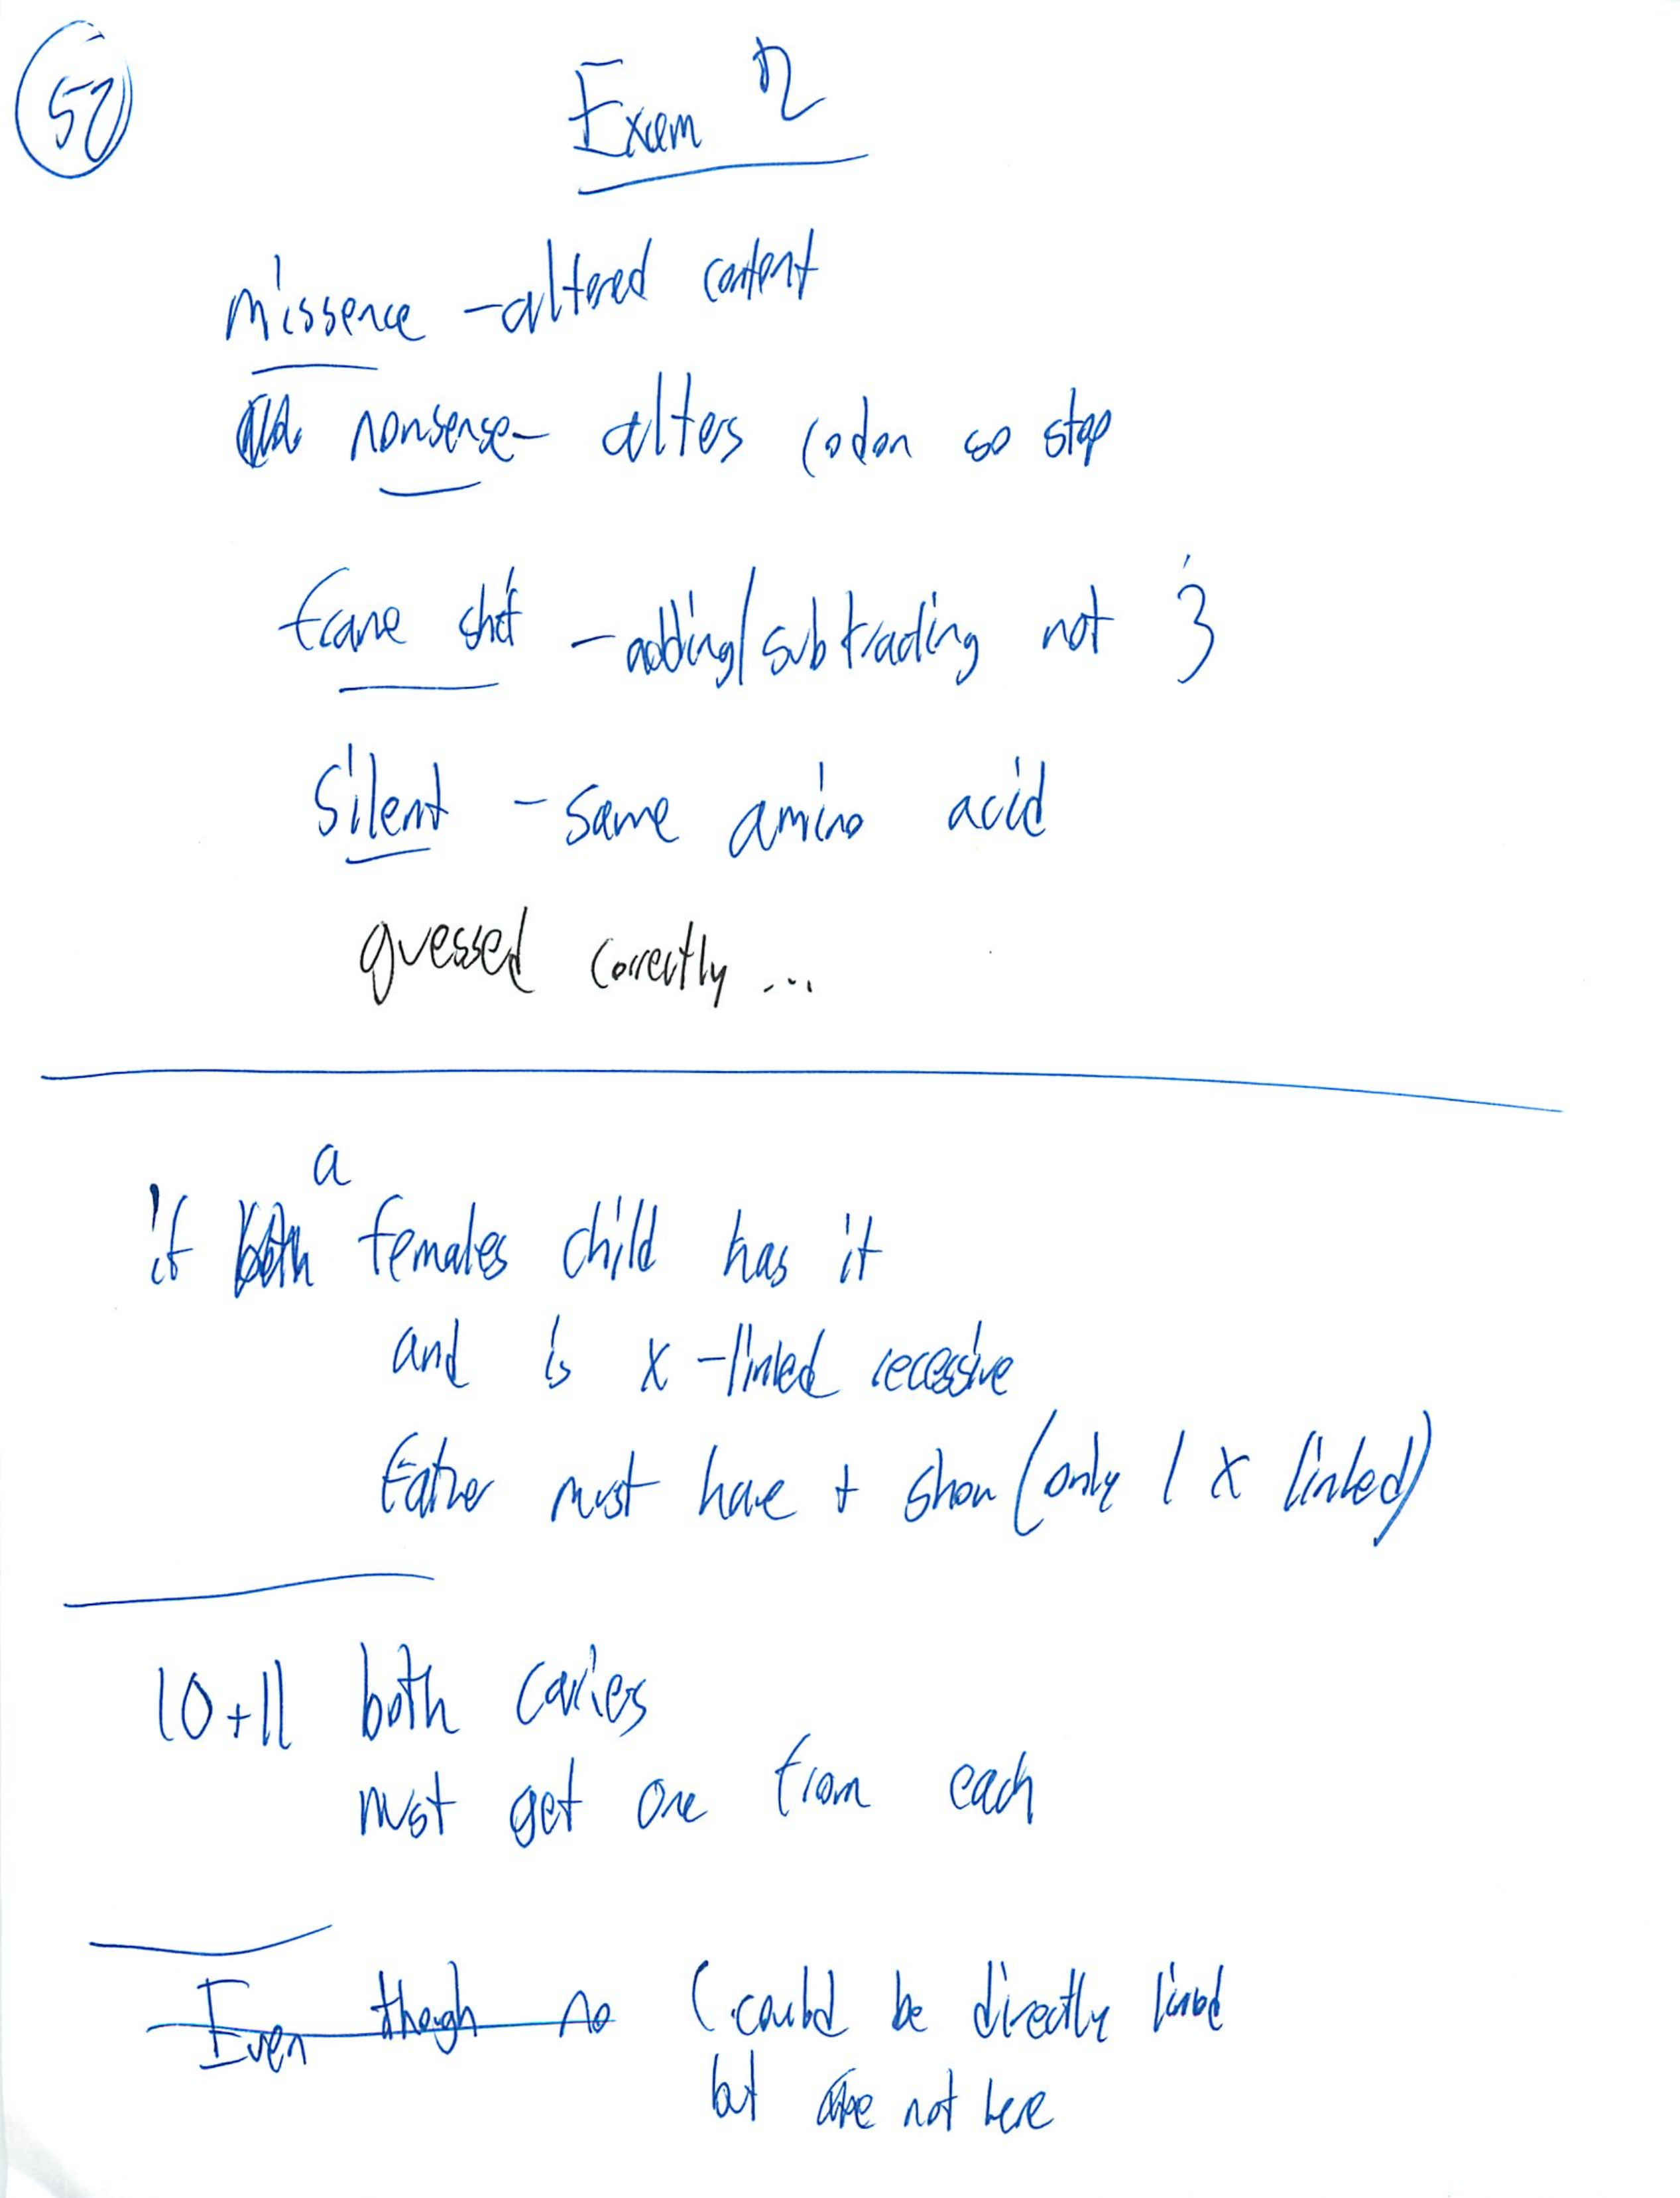 50
Exam 2
missence - altered content
nonsense - alters codon so stop
frame shift - adding/subtracting not 3
Silent - same amino acid
guessed correctly ...
a
if both females child has it
and is x-linked recessive
Father must have + show (only 1 x linked)
10+11 both carries
must get one from each
Even though no (could be directly linked
but are not here